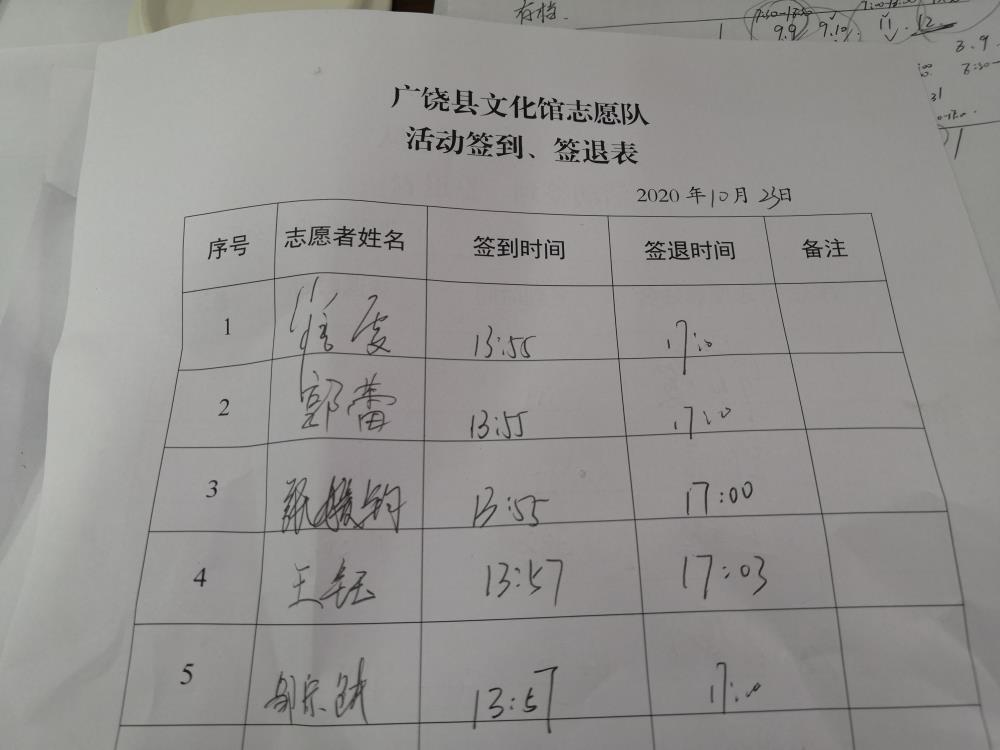 存档.
7:30-17:30
9.9 9.10 11. 12
3.9
广饶县文化馆志愿队
活动签到、签退表
2020 年 10 月 23 日
序号 志愿者姓名 签到时间 签退时间 备注
1 13:55 17:10
2 郭蕾 13:55 17:10
3 13:55 17:00
4 王钰 13:57 17:03
5 13:57 17:00